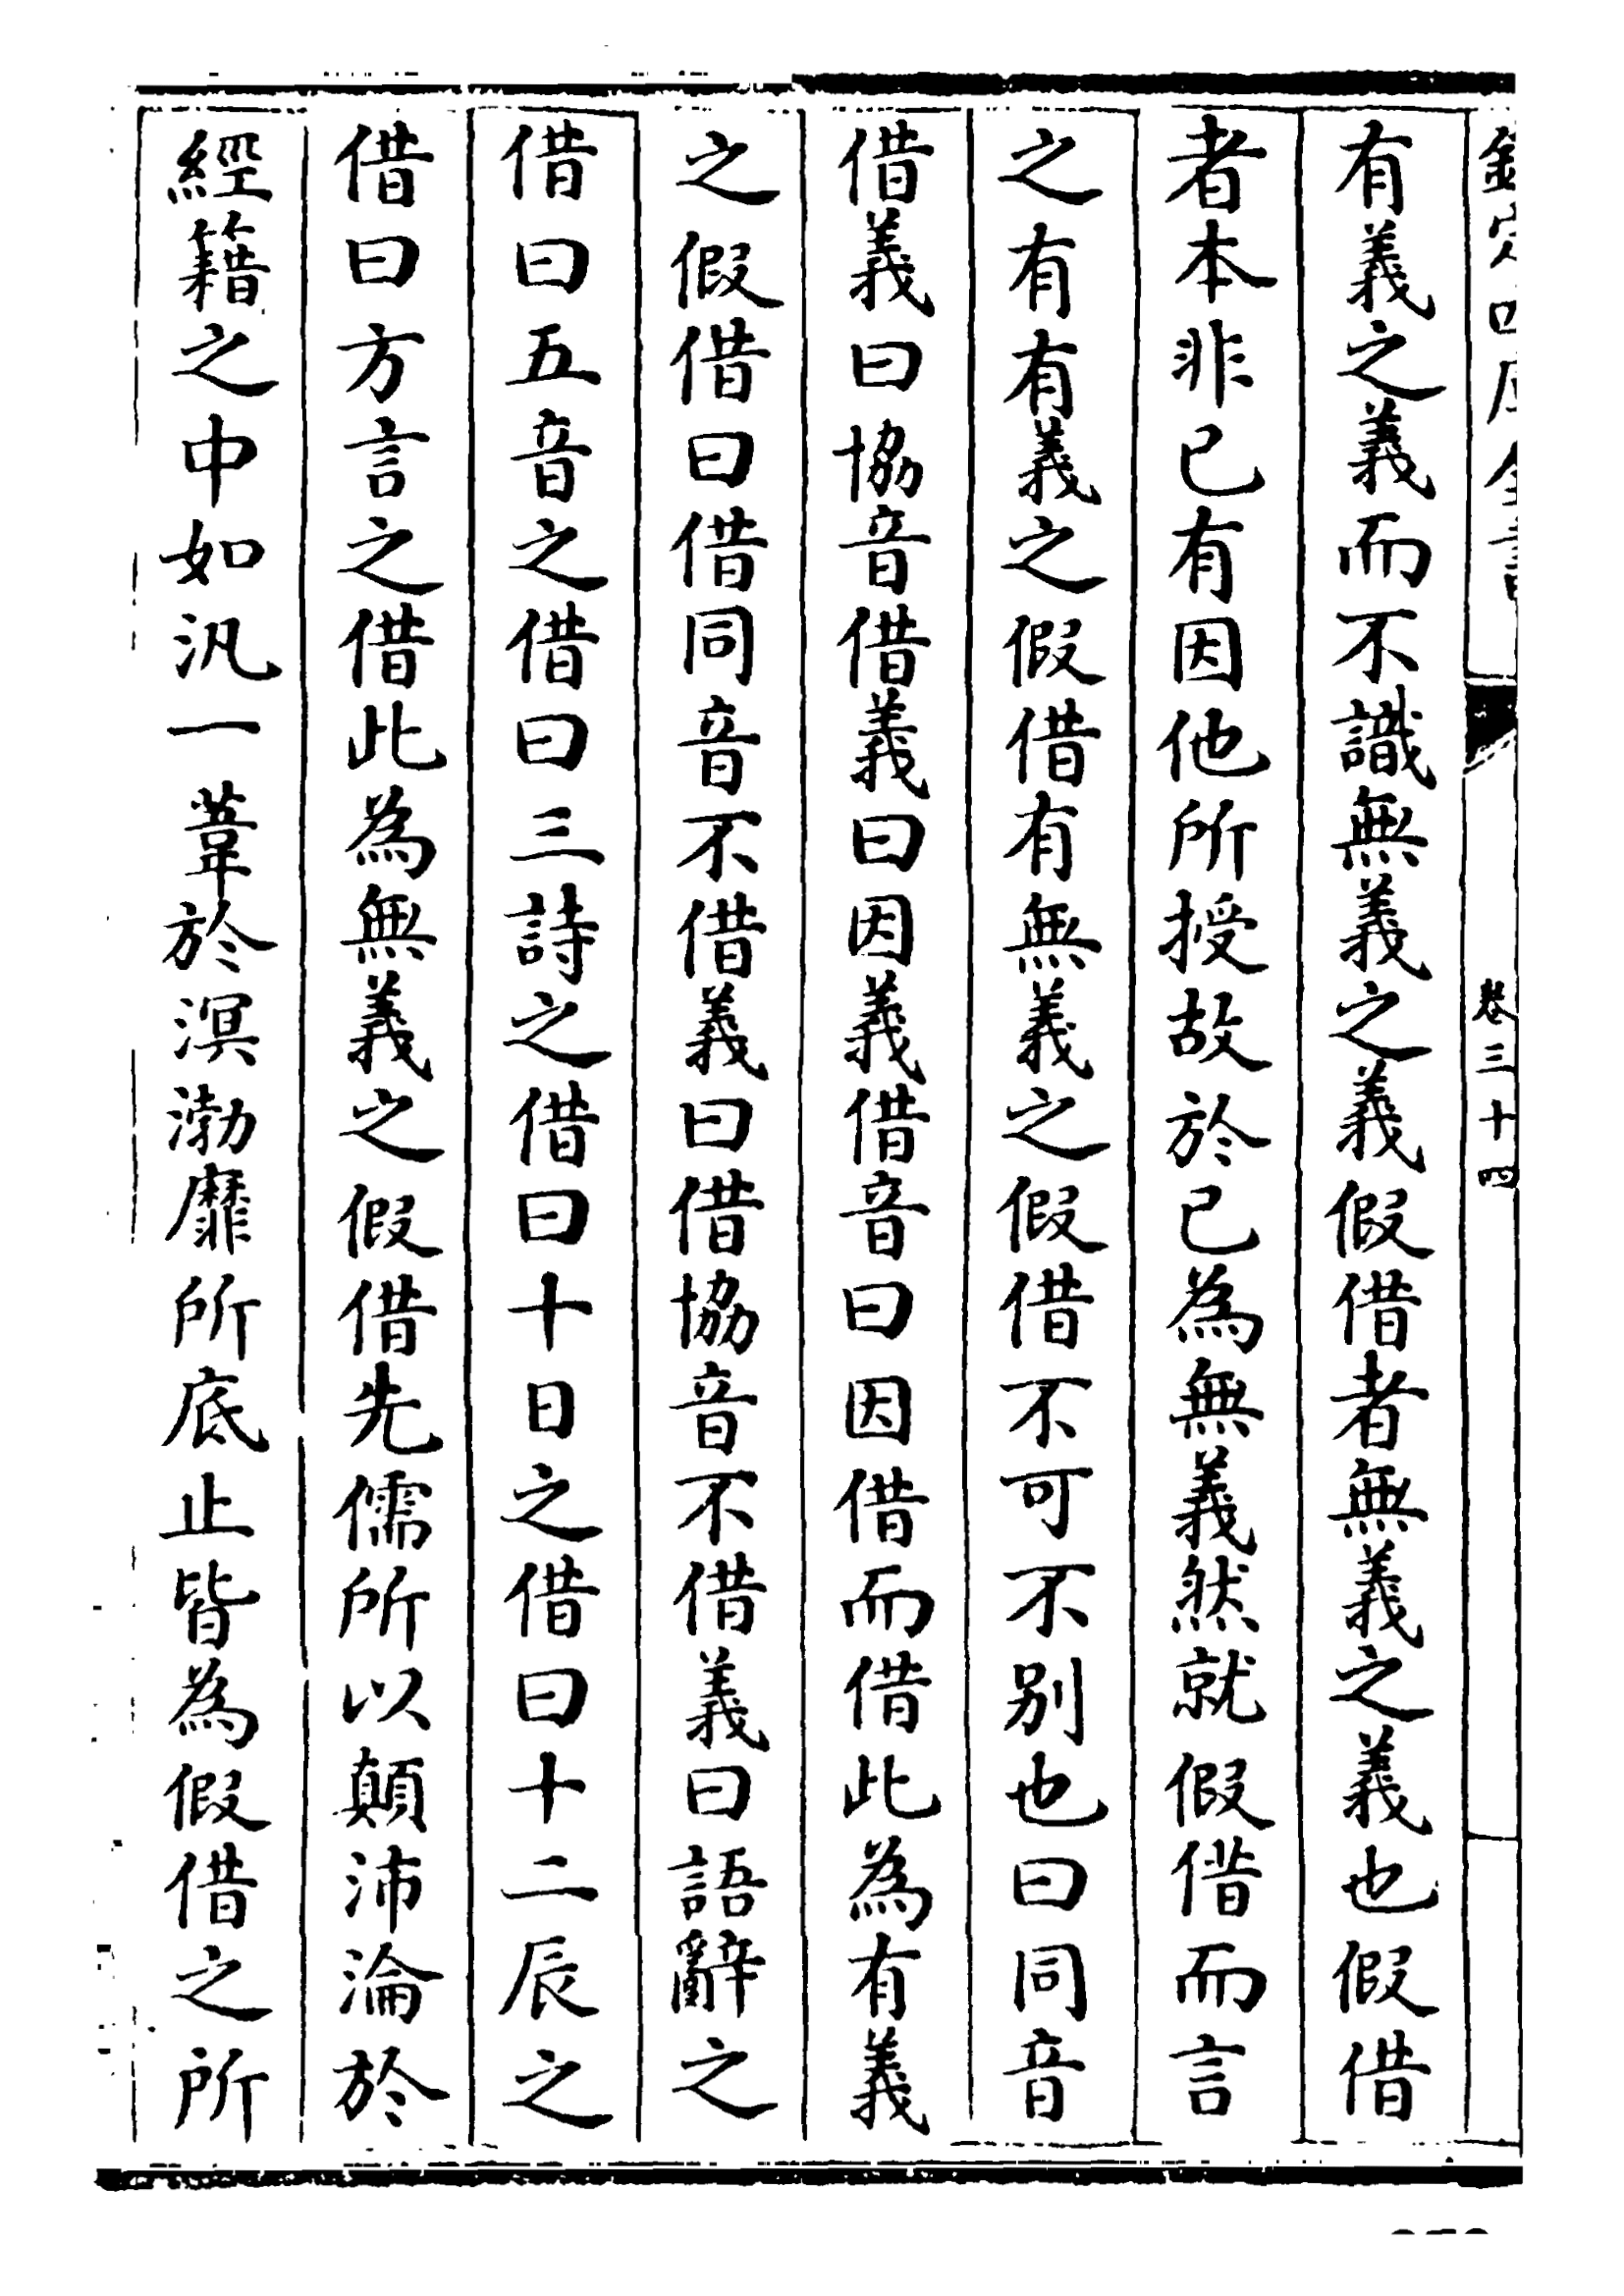 欽定四庫全書
卷三十四
有義之義而不識無義之義假借者無義之義也假借
者本非已有因他所授故於已為無義然就假借而言
之有有義之假借有無義之假借不可不别也曰同音
借義曰協音借義曰因義借音曰因借而借此為有義
之假借曰借同音不借義曰借協音不借義曰語辭之
借曰五音之借曰三詩之借曰十日之借曰十二辰之
借曰方言之借此為無義之假借先儒所以顛沛淪於
經籍之中如汎一葦於溟渤靡所底止皆為假借之所